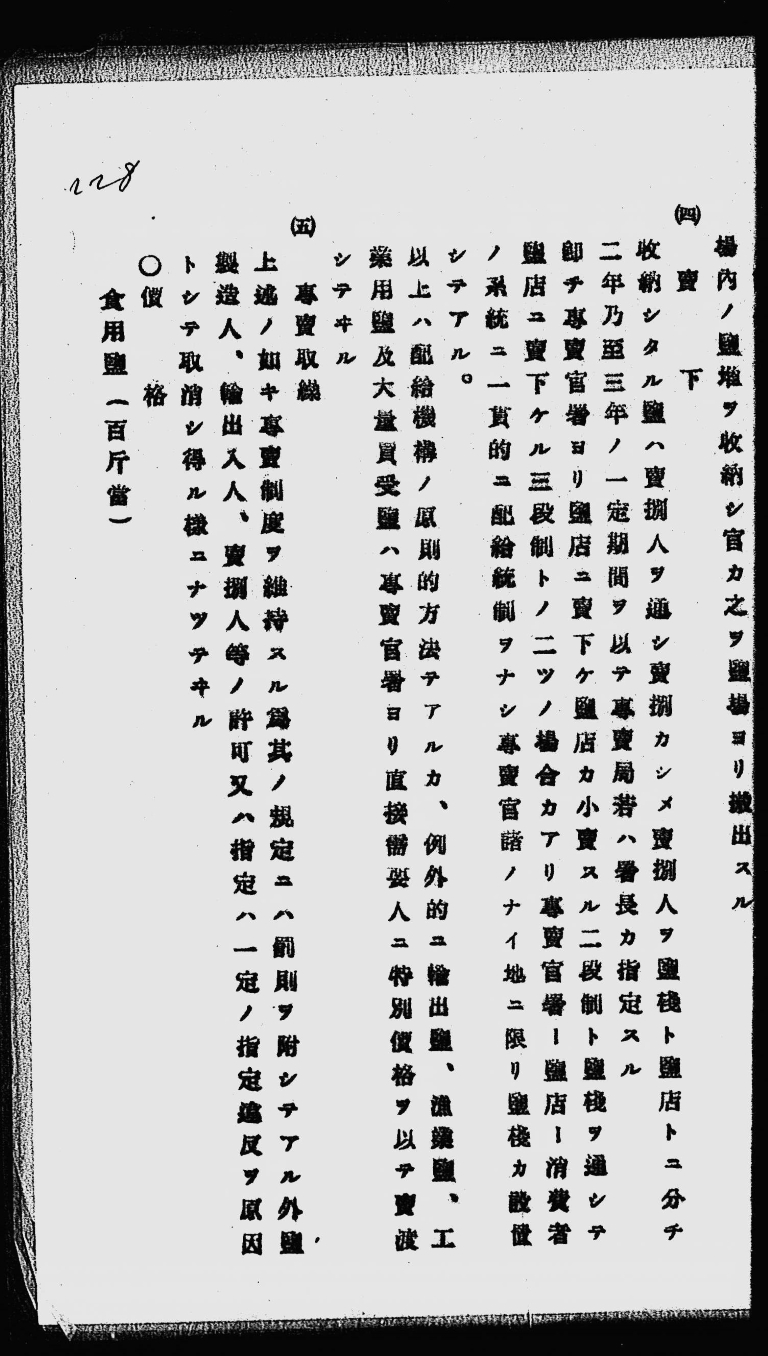 場內ノ鹽堆ヲ收納シ官カ之ヲ鹽場ヨリ搬出スル
㈣　賣　下
收納シタル鹽ハ賣捌人ヲ通シ賣捌カシメ賣捌人ヲ鹽棧ト鹽店トニ分チ
二年乃至三年ノ一定期間ヲ以テ專賣局若ハ署長カ指定スル
卽チ專賣官署ヨリ鹽店ニ賣下ケ鹽店カ小賣スル二段制ト鹽棧ヲ通シテ
鹽店ニ賣下ケル三段制トノ二ツノ場合カアリ專賣官署ー鹽店ー消費者
ノ系統ニ一貫的ニ配給統制ヲナシ專賣官諸ノナイ地ニ限リ鹽棧カ設置
シテアル。
以上ハ配給機構ノ原則的方法テアルカ、例外的ニ輸出鹽、漁業鹽、工
業用鹽及大量買受鹽ハ專賣官署ヨリ直接需要人ニ特別價格ヲ以テ賣渡
シテヰル
㈤　專賣取締
上述ノ如キ專賣制度ヲ維持スル爲其ノ規定ニハ罰則ヲ附シテアル外鹽
製造人、輸出入人、賣捌人等ノ許可又ハ指定ハ一定ノ指定違反ヲ原因
トシテ取消シ得ル樣ニナツテヰル
〇價　格
食用鹽（百斤當）
228